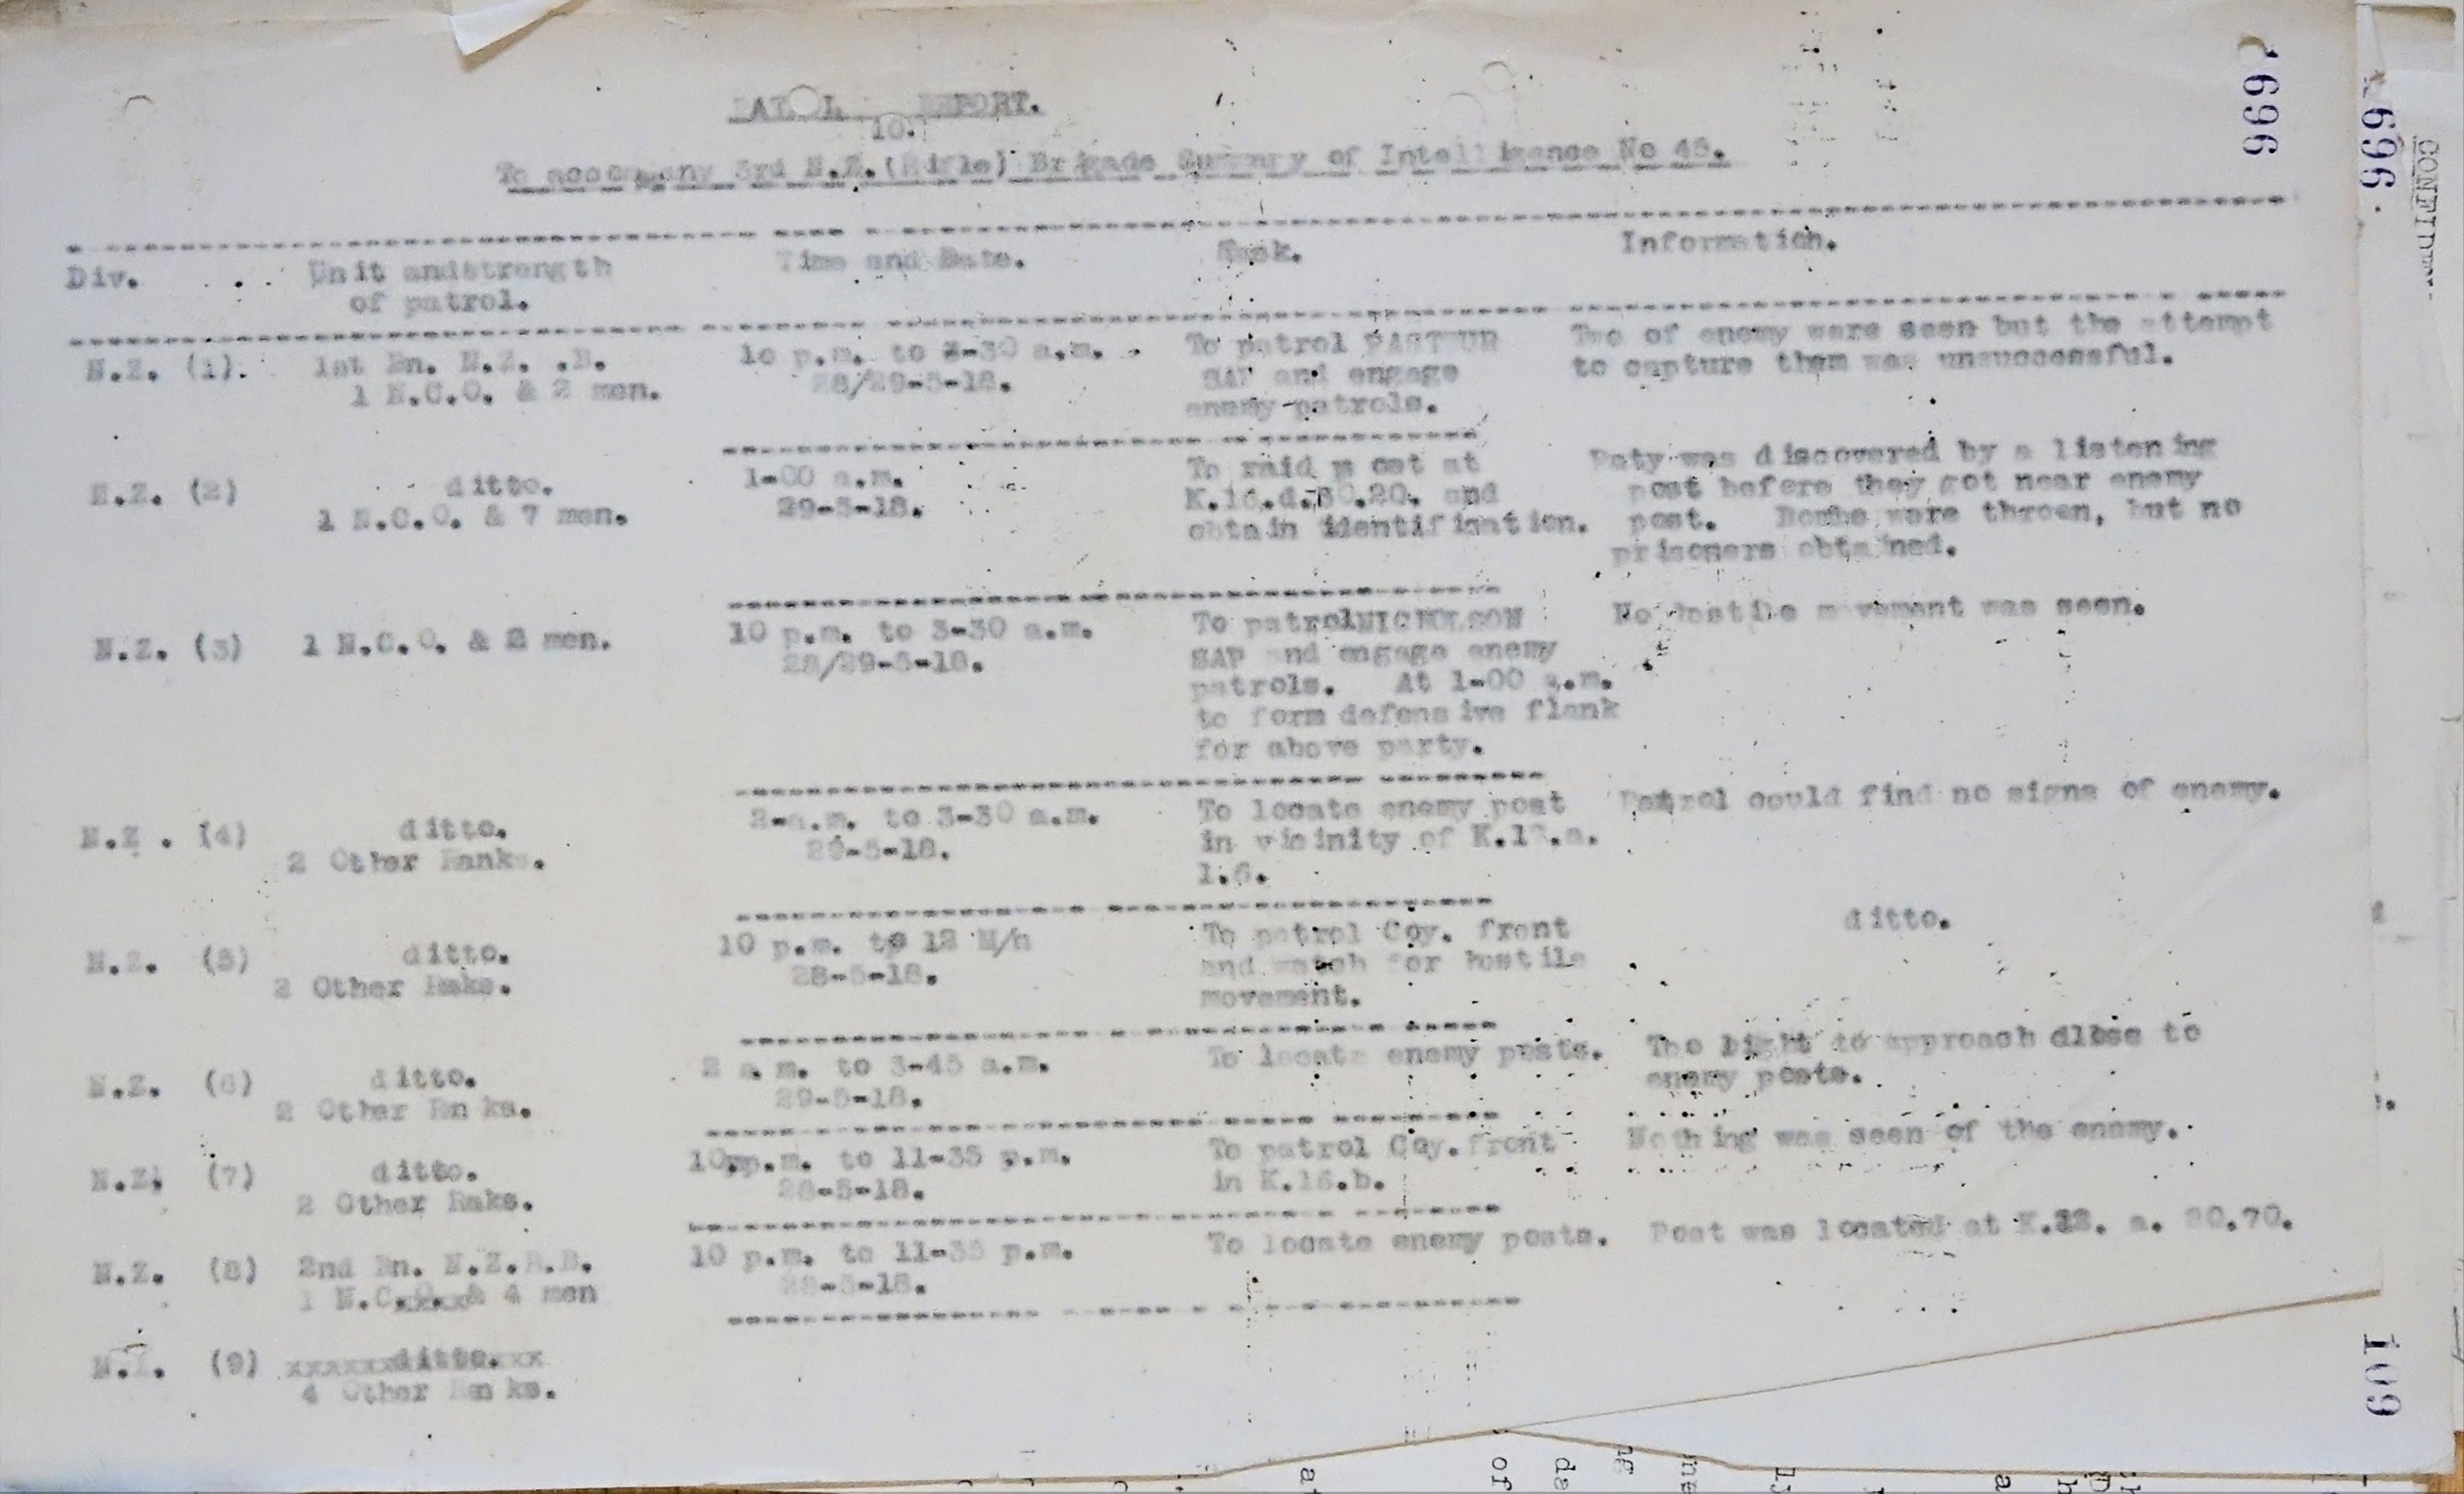 REPORT.
10.
To accompany 3rd N.Z.(Rifle) Brigade Summary of Intelligence No
Div. Unit andstrength Time and Date. Task. Information.
of patrol.
N.Z. (1). 1st Bn. N.Z. .B. 10 p.m. to 3-30 a.m. To patrol PASTEUR Two of enemy were seen but the attempt
1 N.C.O. & 2 men. 28/29-5-18. SAP and engage to capture them was unsuccessful.
enemy patrols.
N.Z. (2) ditto. 1-00 a.m. To raid p ost at Paty was discovered by a listening
1 N.C.O. & 7 men. 29-5-18. and post before they got near enemy
obtain identification. post. Bombs were thrown, but no
prisoners obtained.
N.Z. (3) 1 N.C.O. & 2 men. 10 p.m. to 3-30 a.m. To patrolNICHOLSON No hostile movement was seen.
28/29-5-18. SAP and engage enemy
patrols. At 1-00 a.m.
to form defensive flank
for above party.
N.Z . (4) ditto. 2-a.m. to 3-30 a.m. To locate enemy post Patrol could find no signs of enemy.
2 Other Ranks. 29-5-18. in vicinity of
1.6.
N.Z. (5) ditto. 10 p.m. to 12 M/n To patrol Coy. front ditto.
2 Other Raks. 28-5-18. and watch for hostile
movement.
N.Z. (6) ditto. 2 a.m. to 3-45 a.m. To locate enemy posts. Too light to approach dlose to
2 Other Rn ks. 29-5-18. enemy posts.
N.Z. (7) ditto. 10pp.m. to 11-35 p.m. To patrol Coy.front Nothing was seen of the enemy.
2 Other Raks. 28-5-18. in K.16.b.
N.Z. (8) 2nd Bn. N.Z.R.B. 10 p.m. to 11-35 p.m. To locate enemy posts. Post was located at a.
1 N.C.O. & 4 men 28-5-18.
(9) ditto.
4 Other Ran ks.
696
696.
109